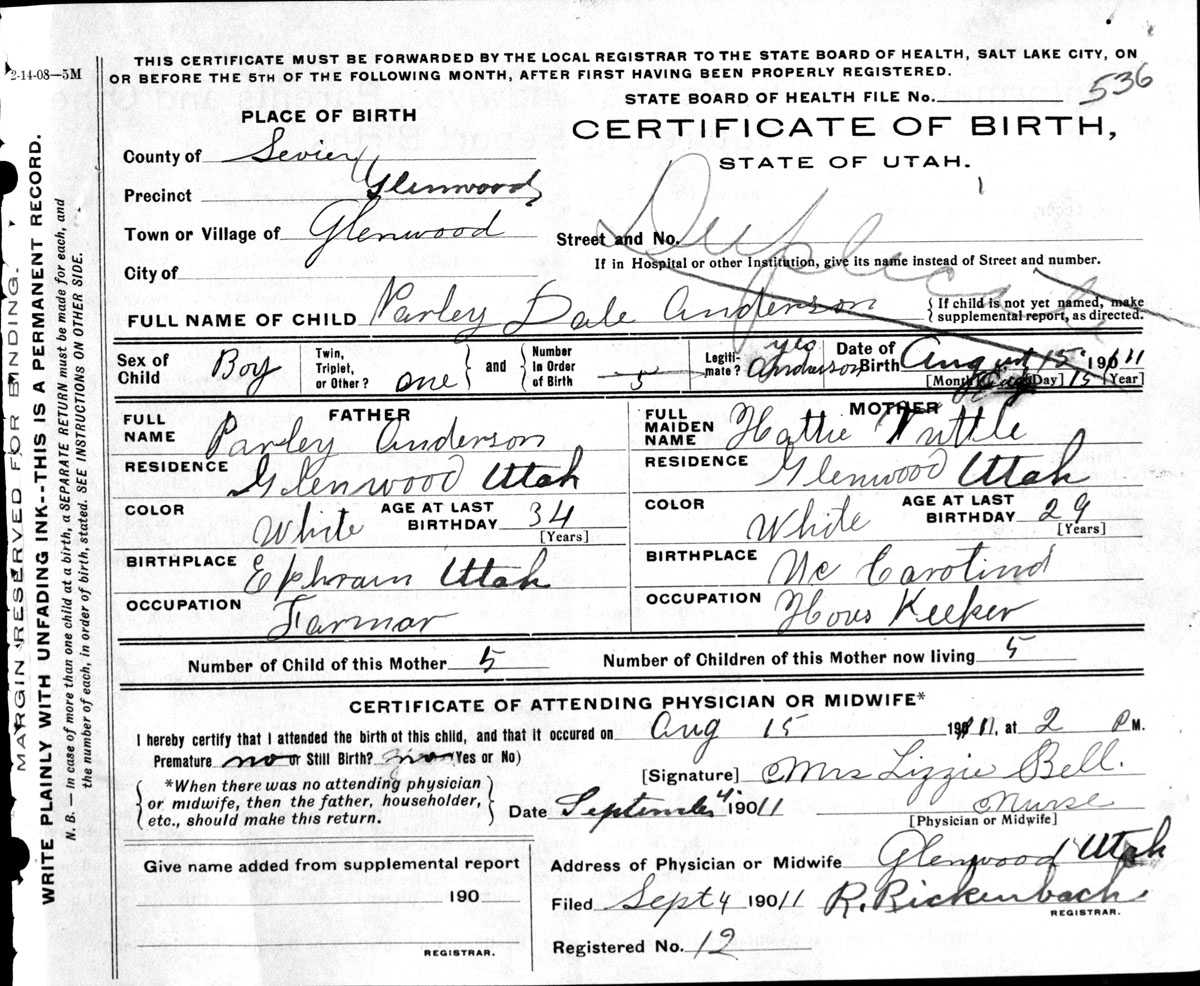 2-14-08—5M
THIS CERTIFICATE MUST BE FORWARDED BY THE LOCAL REGISTRAR TO THE STATE BOARD OF HEALTH, SALT LAKE CITY, ON
OR BEFORE THE 5TH OF THE FOLLOWING MONTH, AFTER FIRST HAVING BEEN PROPERLY REGISTERED.
STATE BOARD OF HEALTH FILE No. 536
PLACE OF BIRTH
CERTIFICATE OF BIRTH,
STATE OF UTAH.
County of Sevier
Precinct Glenwood
Town or Village of Glenwood
Street and No.
Duplicate
If in Hospital or other Institution, give its name instead of Street and number.
City of
FULL NAME OF CHILD Parley Dale Anderson
If child is not yet named, make
supplemental report, as directed.
Sex of Child Boy
Twin, Triplet, or Other? one
and
Number In Order of Birth 5
Legiti-mate? yes Anderson
Date of Birth August 15 1911
[Month] [Day] 15 [Year]
FATHER
FULL NAME Parley Anderson
RESIDENCE Glenwood Utah
COLOR White
AGE AT LAST BIRTHDAY 34
[Years]
BIRTHPLACE Ephraim Utah
OCCUPATION Farmar
MOTHER
FULL MAIDEN NAME Hattie Tuttle
RESIDENCE Glenwood Utah
COLOR White
AGE AT LAST BIRTHDAY 29
[Years]
BIRTHPLACE Carolina
OCCUPATION Hous Keeper
Number of Child of this Mother 5
Number of Children of this Mother now living 5
CERTIFICATE OF ATTENDING PHYSICIAN OR MIDWIFE*
I hereby certify that I attended the birth of this child, and that it occured on Aug 15 1911, at 2 P M.
Premature no or Still Birth? no (Yes or No)
[Signature] Mrs Lizzie Bell.
*When there was no attending physician
or midwife, then the father, householder,
etc., should make this return.
Date September 4. 19011
Nurse
[Physician or Midwife]
Give name added from supplemental report
190
REGISTRAR.
Address of Physician or Midwife Glenwood Utah
Filed Sept 4 19011 R. Rickenbach
REGISTRAR.
Registered No. 12
MARGIN RESERVED FOR BINDING.
WRITE PLAINLY WITH UNFADING INK--THIS IS A PERMANENT RECORD.
N. B. — In case of more than one child at a birth, a SEPARATE RETURN must be made for each, and
the number of each, in order of birth, stated. SEE INSTRUCTIONS ON OTHER SIDE.